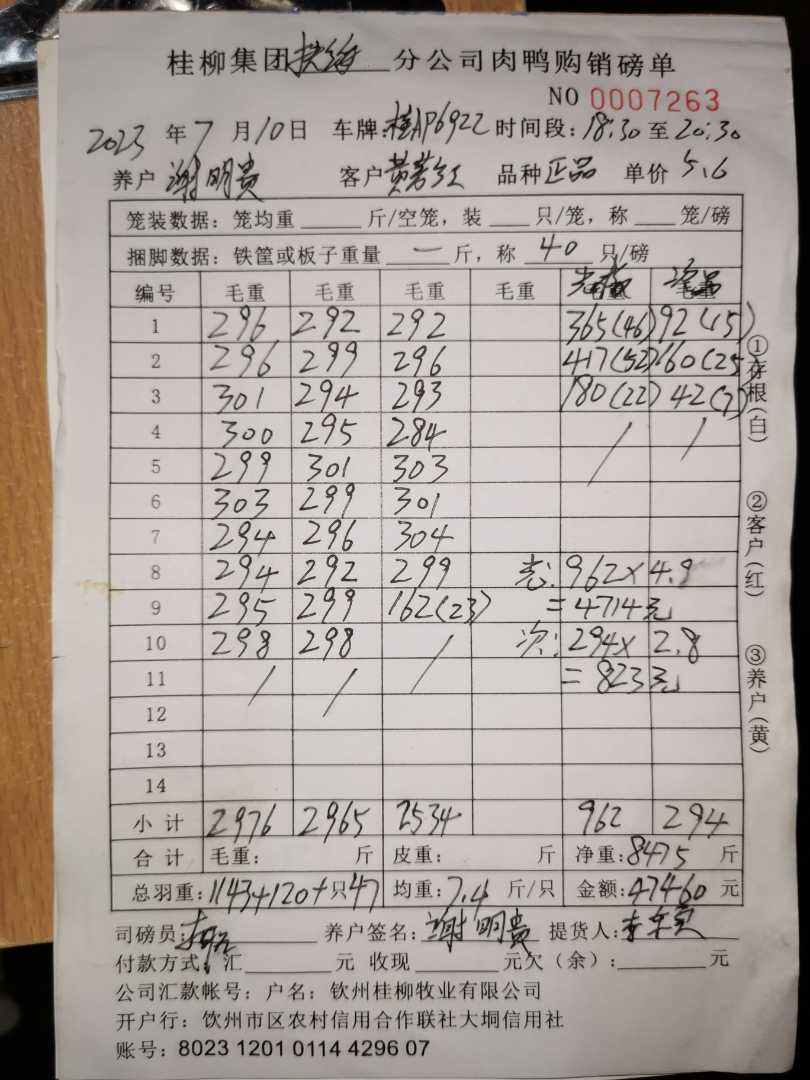 桂柳集团扶绥分公司肉鸭购销磅单
NO 0007263
2023年7月10日 车牌:桂AP6922 时间段:18:30至20:30
养户 谢明贵 客户 黄 品种 正品 单价 5.6
笼装数据:笼均重 斤/空笼,装 只/笼,称 笼/磅
捆脚数据:铁筐或板子重量 一 斤,称 40 只/磅
编号 毛重 毛重 毛重 毛重 次品
1 296 292 292 365(46) 92(15)
2 296 299 296 417(52) 160(25)
3 301 294 293 180(22) 42(7)
4 300 295 284 / /
5 299 301 303
6 303 299 301
7 294 296 304
8 294 292 299 962×4.9
9 295 299 162(23) =4714元
10 298 298 / 次:294×2.8
11 / / =823元
12
13
14
小计 2976 2965 2534 962 294
合计 毛重: 斤 皮重: 斤 净重:8475 斤
总羽重:1143+120+只47 均重:7.4 斤/只 金额:47460 元
司磅员: 养户签名:谢明贵 提货人:李
付款方式:汇 元 收现 元欠(余): 元
公司汇款帐号:户名:钦州桂柳牧业有限公司
开户行:饮州市区农村信用合作联社大垌信用社
账号:8023 1201 0114 4296 07
①存根(白)
②客户(红)
③养户(黄)